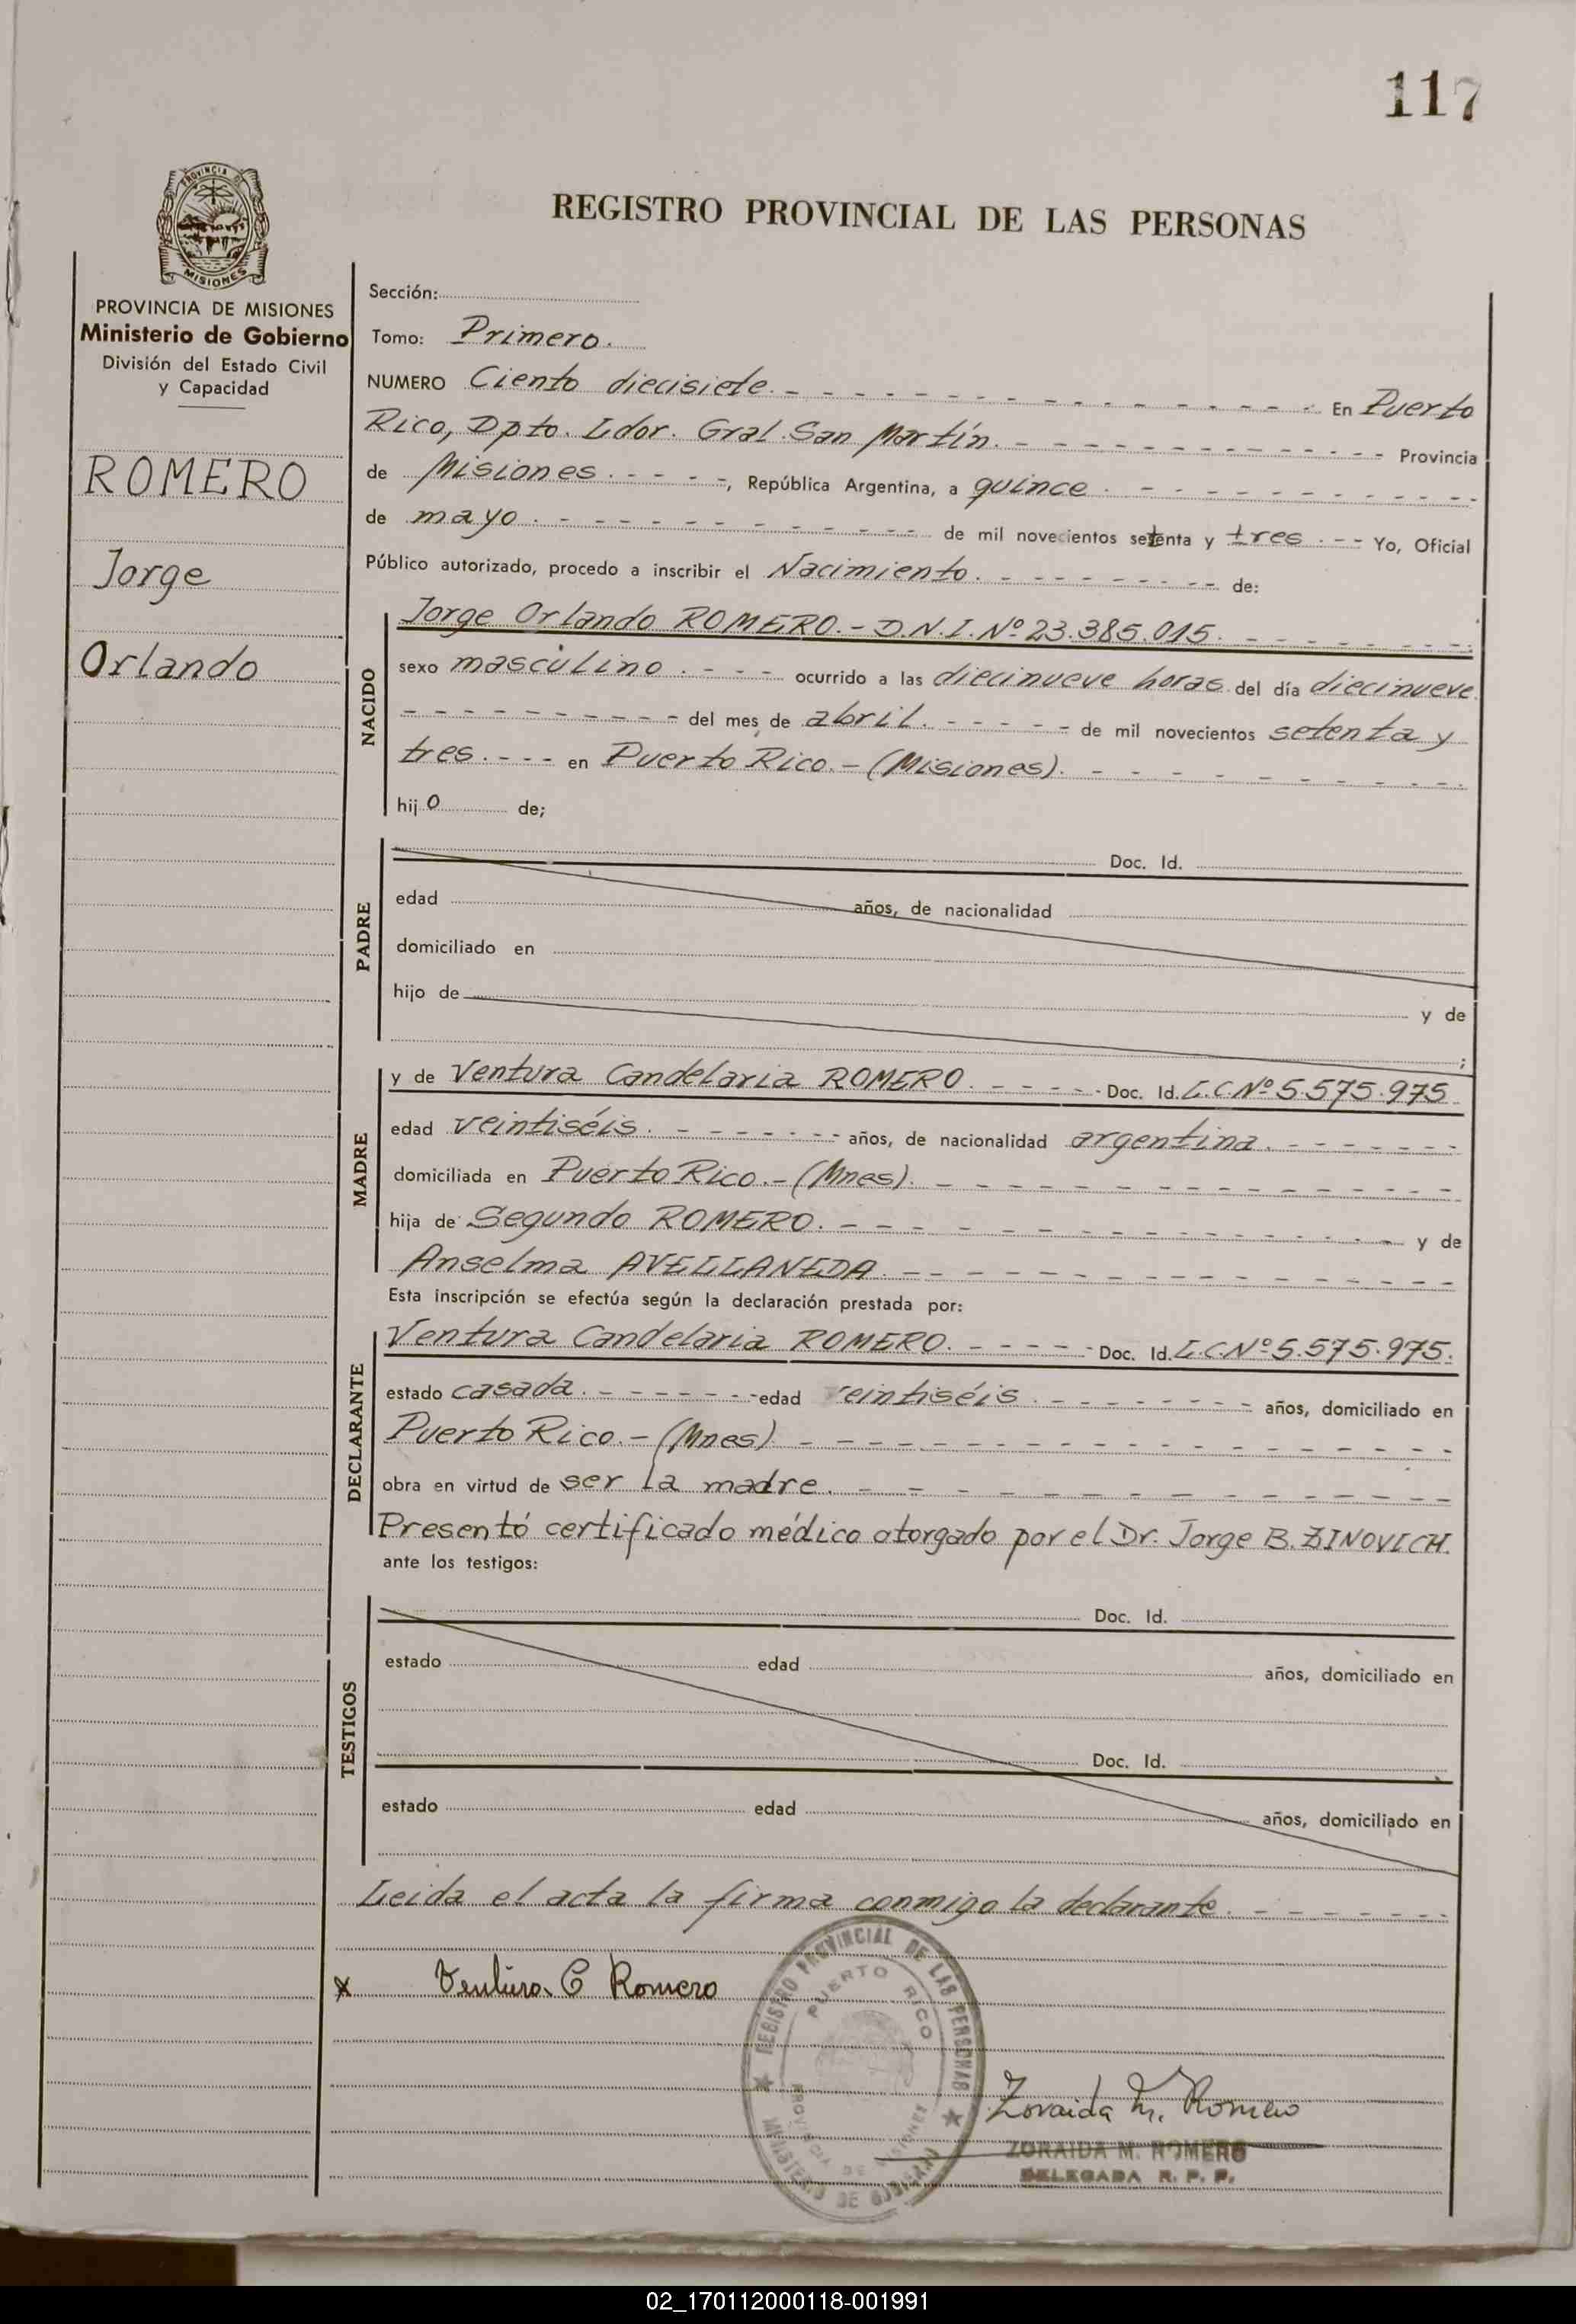 117
PROVINCIA DE
MISIONES
REGISTRO PROVINCIAL DE LAS PERSONAS
PROVINCIA DE MISIONES
Ministerio de Gobierno
División del Estado Civil
y Capacidad
ROMERO
Jorge
Orlando
Sección:
Tomo: Primero.
NUMERO Ciento diecisiete. - - - - En Puerto
Rico, Dpto. Ldor. Gral. San Martín. - - - - Provincia
de Misiones. - - - -, República Argentina, a quince. - - - -
de mayo. - - - - de mil novecientos setenta y tres. - - Yo, Oficial
Público autorizado, procedo a inscribir el Nacimiento. - - - - de:
NACIDO
Jorge Orlando ROMERO. - D.N.I. Nº 23.385.015. - - - -
sexo masculino. - - - - ocurrido a las diecinueve horas del día diecinueve
- - - - del mes de abril. - - - - de mil novecientos setenta y
tres. - - - en Puerto Rico. - (Misiones). - - - -
hij o de;
PADRE
Doc. Id.
edad años, de nacionalidad
domiciliado en
hijo de y de
;
MADRE
y de Ventura Candelaria ROMERO. - - - - Doc. Id. L.C. Nº 5.575.975
edad veintiséis. - - - - años, de nacionalidad argentina. - - - -
domiciliada en Puerto Rico. - (Mnes). - - - -
hija de Segundo ROMERO. - - - - y de
Anselma AVELLANEDA. - - - -
Esta inscripción se efectúa según la declaración prestada por:
DECLARANTE
Ventura Candelaria ROMERO. - - - - Doc. Id. L.C. Nº 5.575.975.
estado casada. - - - - edad veintiséis. - - - - años, domiciliado en
Puerto Rico. - (Mnes) - - - -
obra en virtud de ser la madre. - - - -
Presentó certificado médico otorgado por el Dr. Jorge B. ZINOVICH.
ante los testigos:
TESTIGOS
Doc. Id.
estado edad años, domiciliado en
Doc. Id.
estado edad años, domiciliado en
Leida el acta la firma conmigo la declarante. - - - -
x Ventura C Romero
REGISTRO PROVINCIAL DE LAS PERSONAS
PUERTO RICO
PROVINCIA DE MISIONES
MINISTERIO DE GOBIERNO
Zoraida M. Romero
ZORAIDA M. ROMERO
DELEGADA R. P. P.
02_170112000118-001991